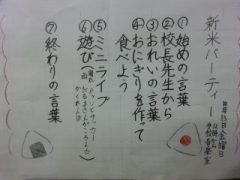 新米パーティー
①始めの言葉
②校長先生から
③おれいの言葉
④おにぎりを作って
食べよう
⑤ミニライブ
⑥遊び
⑦終わりの言葉